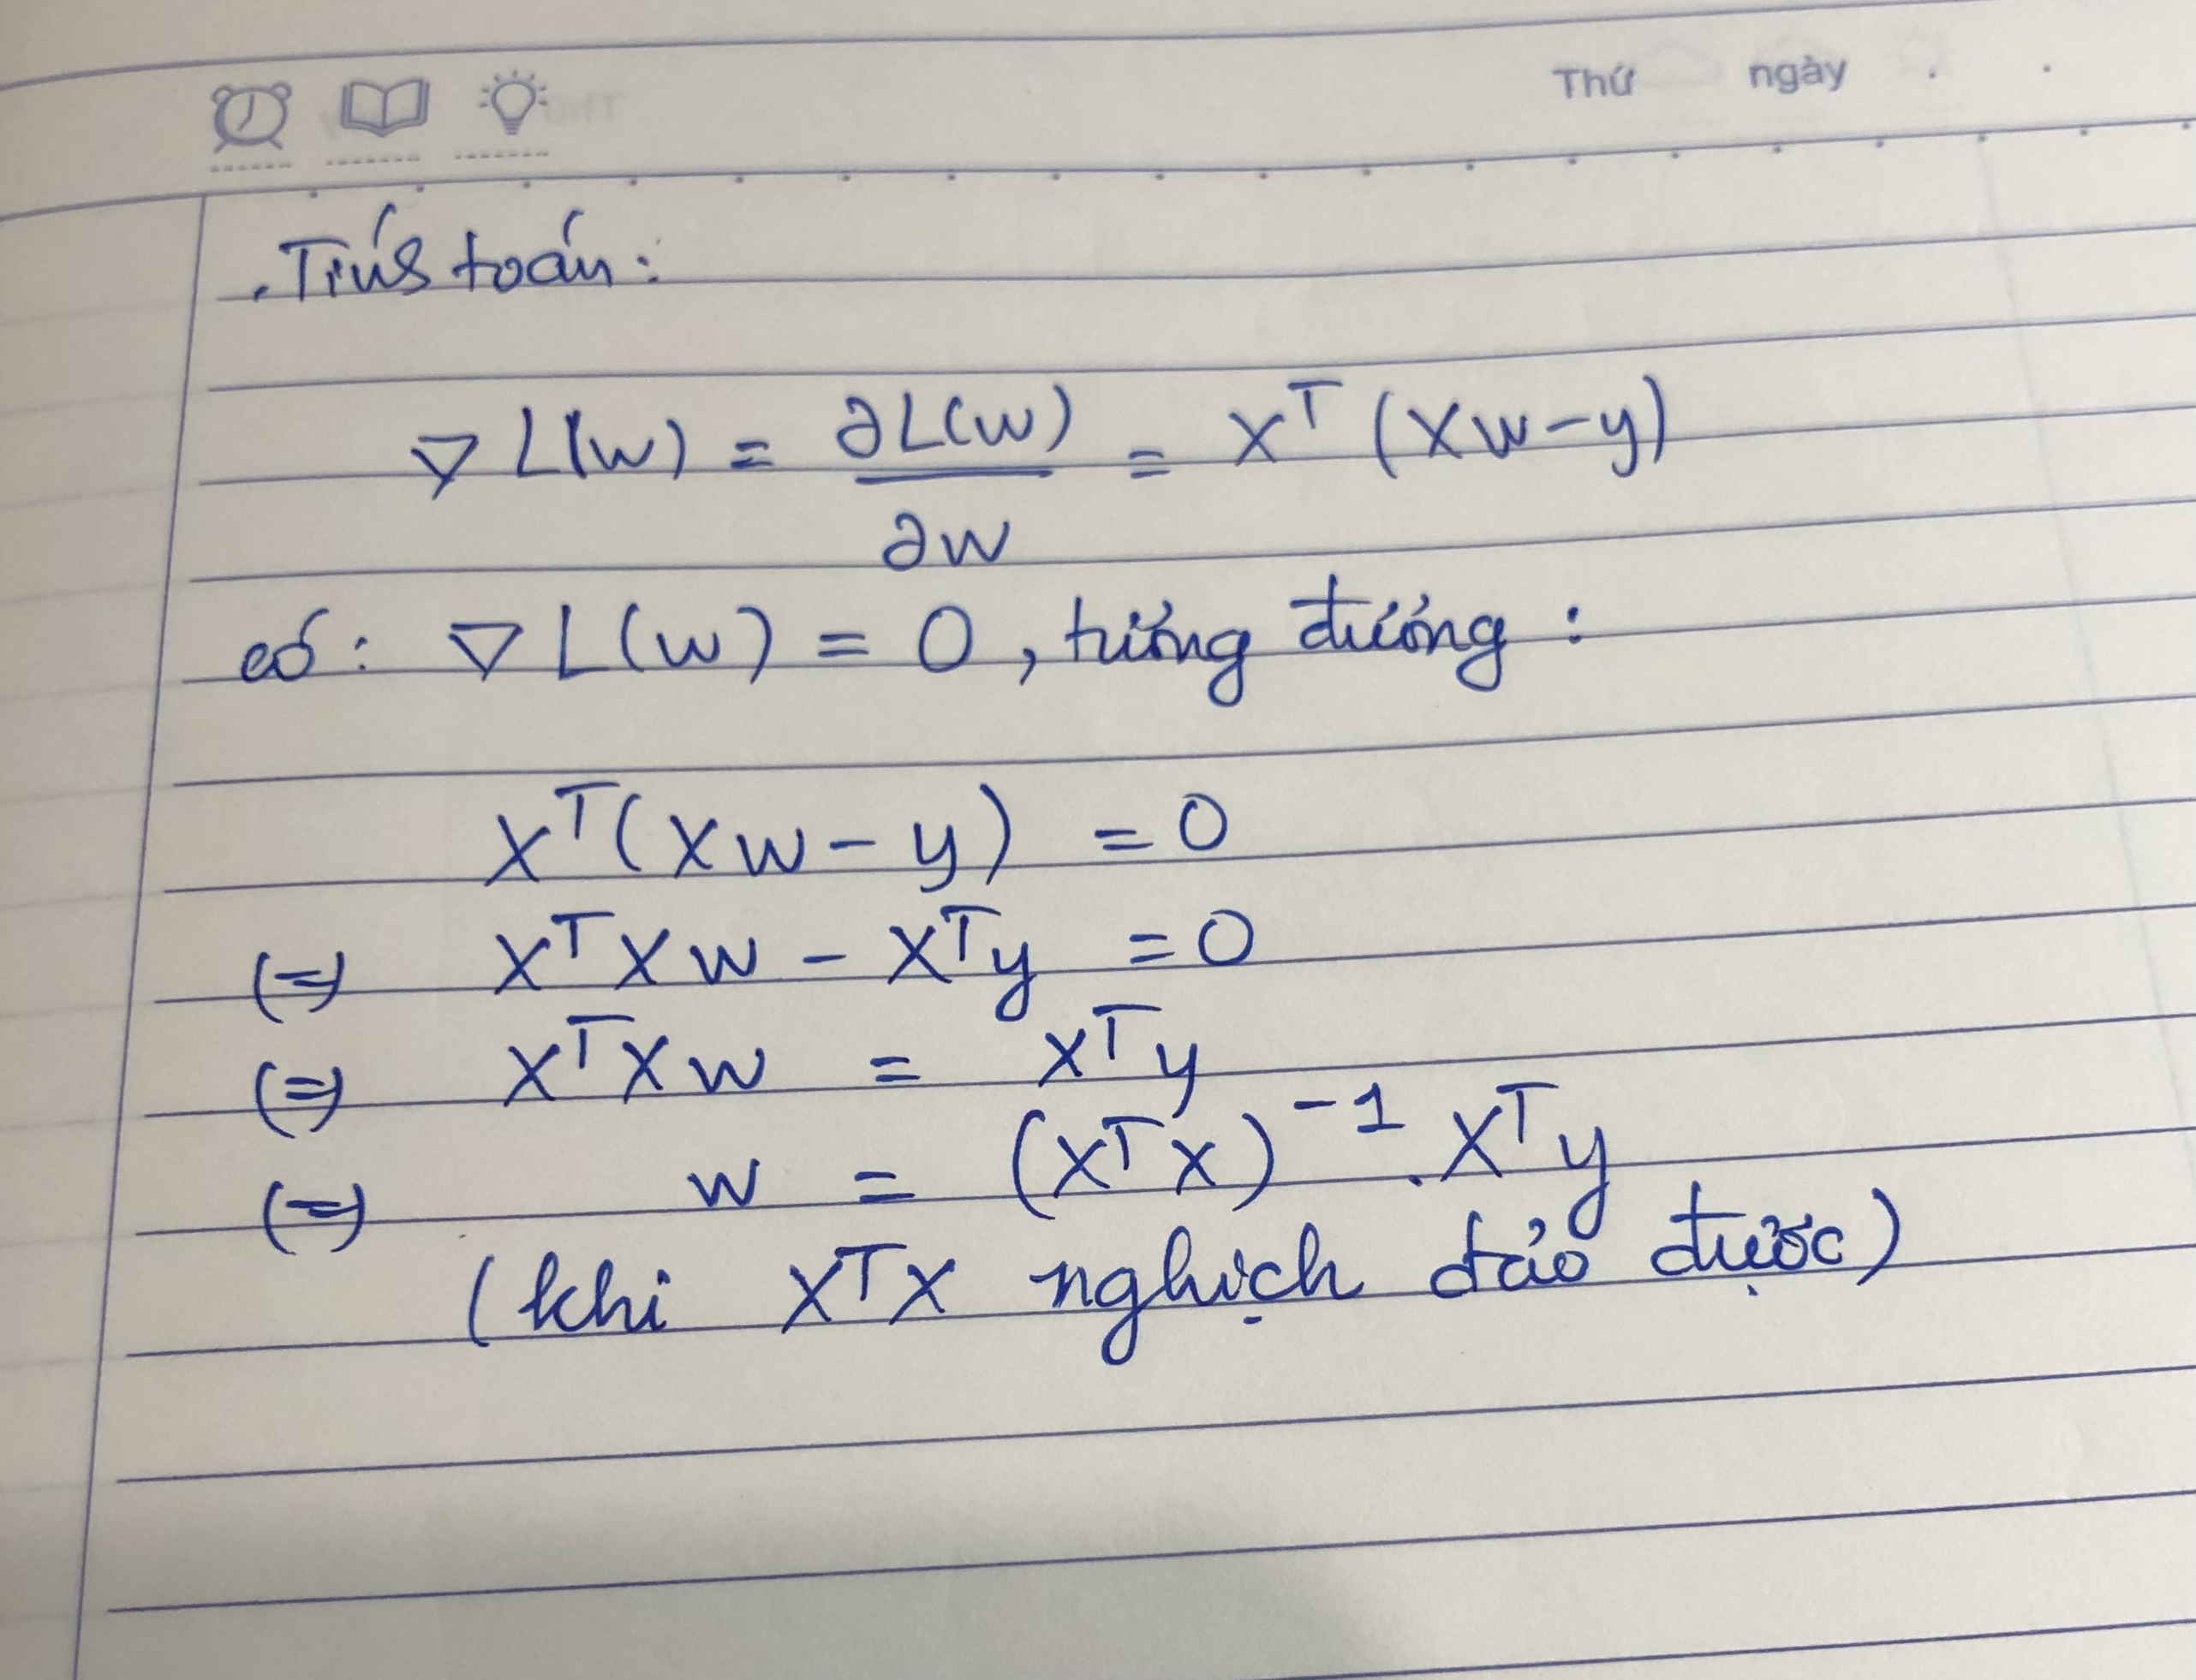 Thứ ngày . .
. Tính toán:
∇ L(w) = ∂L(w) / ∂w = Xᵀ (Xw – y)
có: ∇ L(w) = 0, tương đương :
Xᵀ(Xw – y) = 0
(=) XᵀXw – Xᵀy = 0
(=) XᵀXw = Xᵀy
(=) w = (XᵀX)⁻¹ . Xᵀy
(khi XᵀX nghịch đảo được)